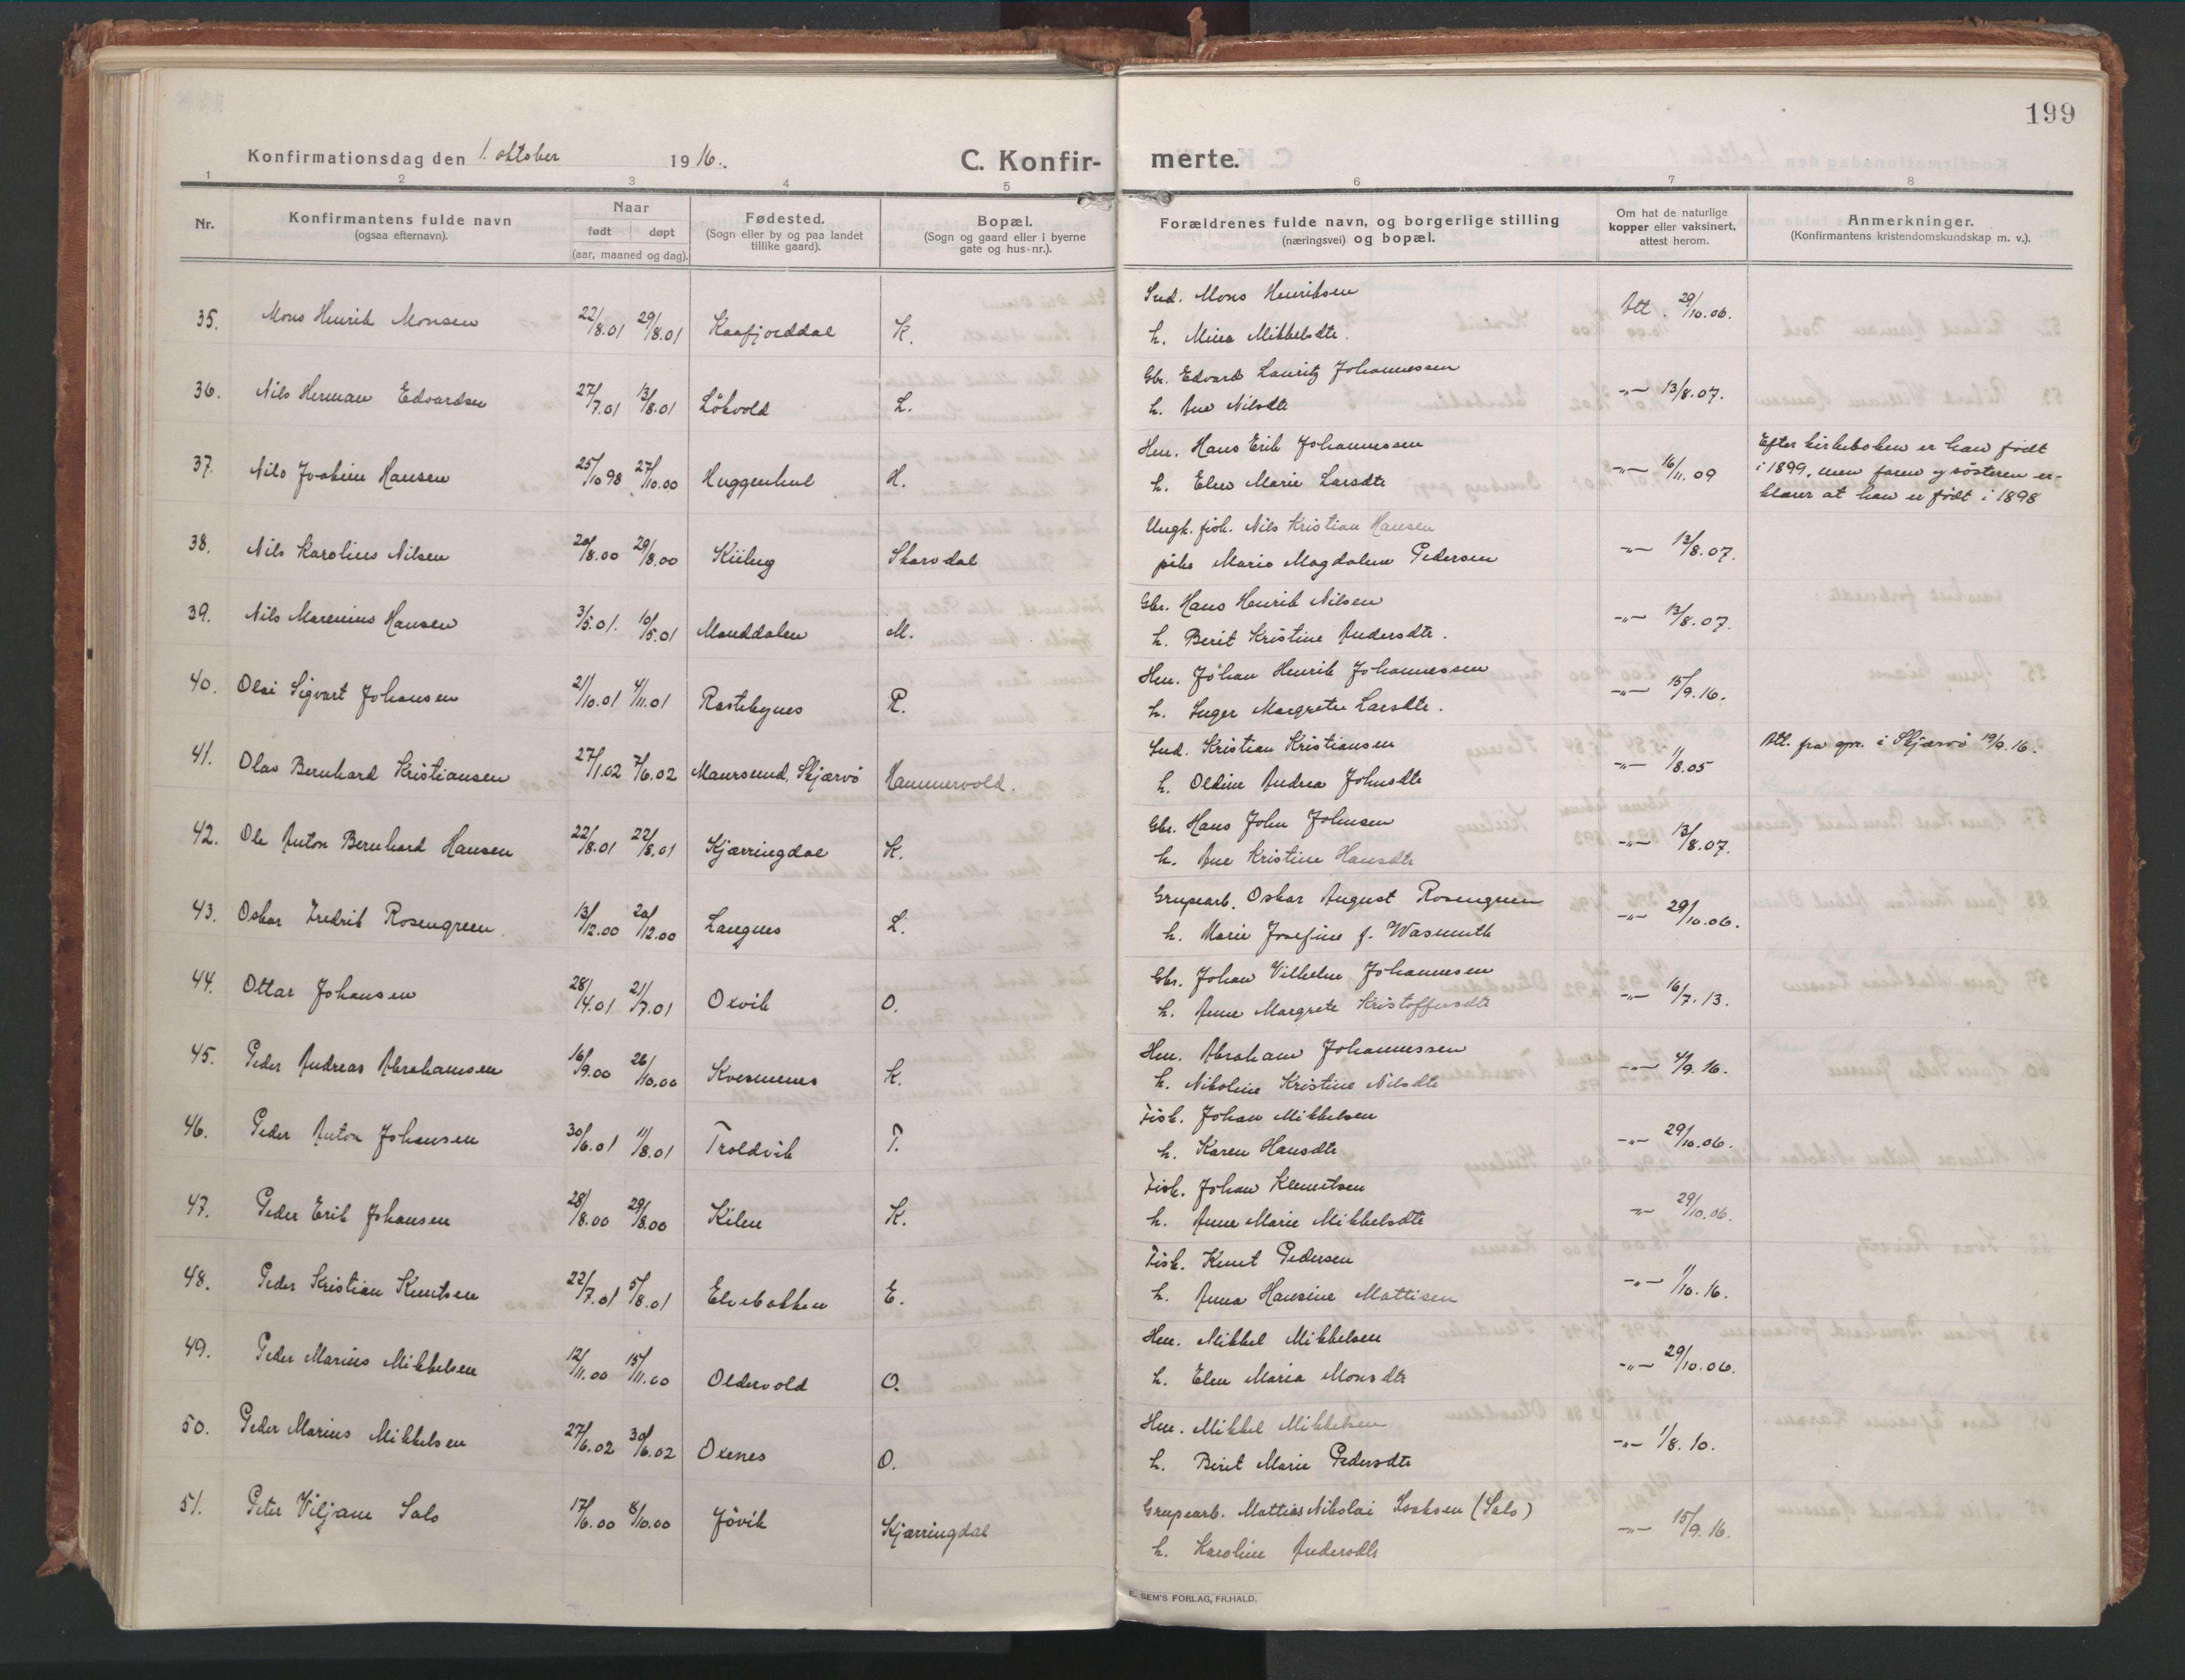 199
Konfirmationsdag den 1. oktober 1916. C. Konfir- merte.
1 2 3 4 5 6 7 8
Nr. Konfirmantens fulde navn (ogsaa efternavn). Naar født døpt (aar, maaned og dag). Fødested. (Sogn eller by og paa landet tillike gaard). Bopæl. (Sogn og gaard eller i byerne gate og hus-nr.). Forældrenes fulde navn, og borgerlige stilling (næringsvei) og bopæl. Om hat de naturlige kopper eller vaksinert, attest herom. Anmerkninger. (Konfirmantens kristendomskundskap m. v.).
35. Mons Henrik Monsen 22/8.01 29/8.01 Kaafjorddal K. Ind. Mons Henriksen Att. 29/10.06.
h. Mina Mikkelsdtr.
36. Nils Herman Edvardsen 27/7.01 13/8.01 Løkvold L. Gbr. Edvard Lauritz Johannessen -"- 13/8.07.
h. Ane Nilsdtr
37. Nils Joakim Hansen 25/10 98 27/10.00 Huggenhul H. Hm. Hans Erik Johannessen -"- 16/11.09 Efter kirkeboken er han født
h. Elen Marie Larsdtr i 1899, men faren og søsteren er-
klærer at han er født i 1898
38. Nils Karolius Nilsen 20/8.00 29/8.00 Kiilug Skarsdal Ungk. fisk. Nils Kristian Hansen -"- 13/8.07.
pike Marie Magdalena Pedersen
39. Nils Marenius Hansen 3/5.01. 10/5.01 Manddalen M. Gbr. Hans Henrik Nilsen -"- 13/8.07.
h. Berit Kristine Andersdtr.
40. Olai Sigvart Johansen 21/10.01 4/11.01 Rastebynes R. Hm. Johan Henrik Johannessen -"- 15/9.16.
h. Inger Margrete Larsdtr.
41. Olas Bernhard Kristiansen 27/1.02 7/6.02 Maursund, Skjærvø Hammervold. Ind. Kristian Kristiansen -"- 1/8.05 Att. fra spr. i Skjærvø 19/9.16.
h. Oldine Andrea Johnsdtr
42. Ole Anton Bernhard Hansen 22/8.01 22/8.01 Kjærringdal K. Gbr. Hans John Johnsen -"- 13/8.07.
h. Ane Kristine Hansdtr
43. Oskar Fredrik Rosengreen 13/12.00 20/12.00 Langnes L. Grupearb. Oskar August Rosengreen -"- 29/10.06.
h. Marie Josefine f. Wasmuth
44. Ottar Johansen 28/4.01 21/7.01 Oxvik O. Gbr. Johan Vilhelm Johannesen -"- 16/7.13.
h. Anne Margrete Kristoffersdtr
45. Peder Andreas Abrahamsen 16/9.00 26/10.00 Kvesmenes K. Hm. Abraham Johannessen -"- 4/9.16.
h. Nikoline Kristine Nilsdtr
46. Peder Anton Johansen 30/6.01 11/8.01 Troldvik T. Fisk. Johan Mikkelsen -"- 29/10.06.
h. Karen Hansdtr
47. Peder Erik Johansen 28/8.00 29/8.00 Kilen K. Fisk. Johan Klemetsen -"- 29/10.06.
h. Anne Marie Mikkelsdtr
48. Peder Kristian Knutsen 22/7.01 5/8.01 Elvebakken E. Fisk. Knut Pedersen -"- 1/10.16.
h. Anna Hansine Mattisen
49. Peder Marius Mikkelsen 12/11.00 15/11.00 Oldervold O. Hm. Mikkel Mikkelsen -"- 29/10.06.
h. Elen Maria Monsdtr
50. Peder Marius Mikkelsen 27/6.02 30/6.02 Oxnes O. Hm. Mikkel Mikkelsen -"- 1/8.10.
h. Berit Marie Pedersdtr
51. Peter Viljam Salo 17/6.00 8/10.00 Jøvik Kjærringdal Grupearb. Mattias Nikolai Isaksen (Salo) -"- 15/9.16.
h. Karoline Andersdtr
E. SEM'S FORLAG, FR.HALD.